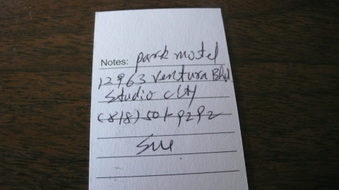 Notes: park motel
12963 Ventura Blvd
Studio city
(818) 501-9292
Sue